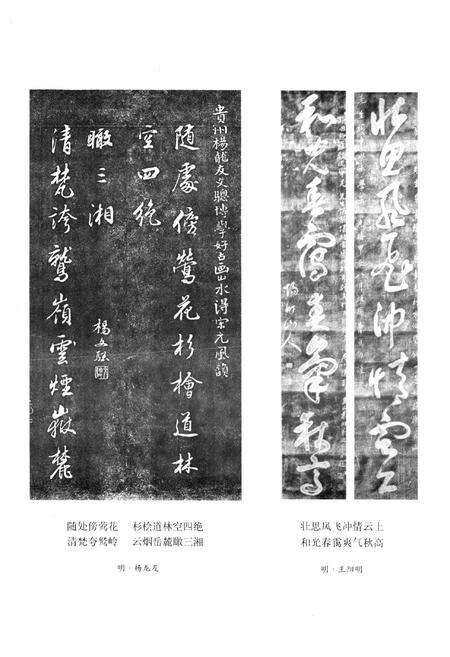 贵州楊龍友文驄博學好古画山水得宗元風韻
随處傍鶯花杉檜道林
空四絶
瞰三湘
清梵誇鷲嶺雲煙嶽麓
楊文驄
壮思風飛沖情雲上
和光春靄爽氣秋高
陽明山人
随处傍莺花 杉桧道林空四绝
清梵夸鹫岭 云烟岳麓瞰三湘
明·杨龙友
壮思风飞冲情云上
和光春霭爽气秋高
明·王阳明